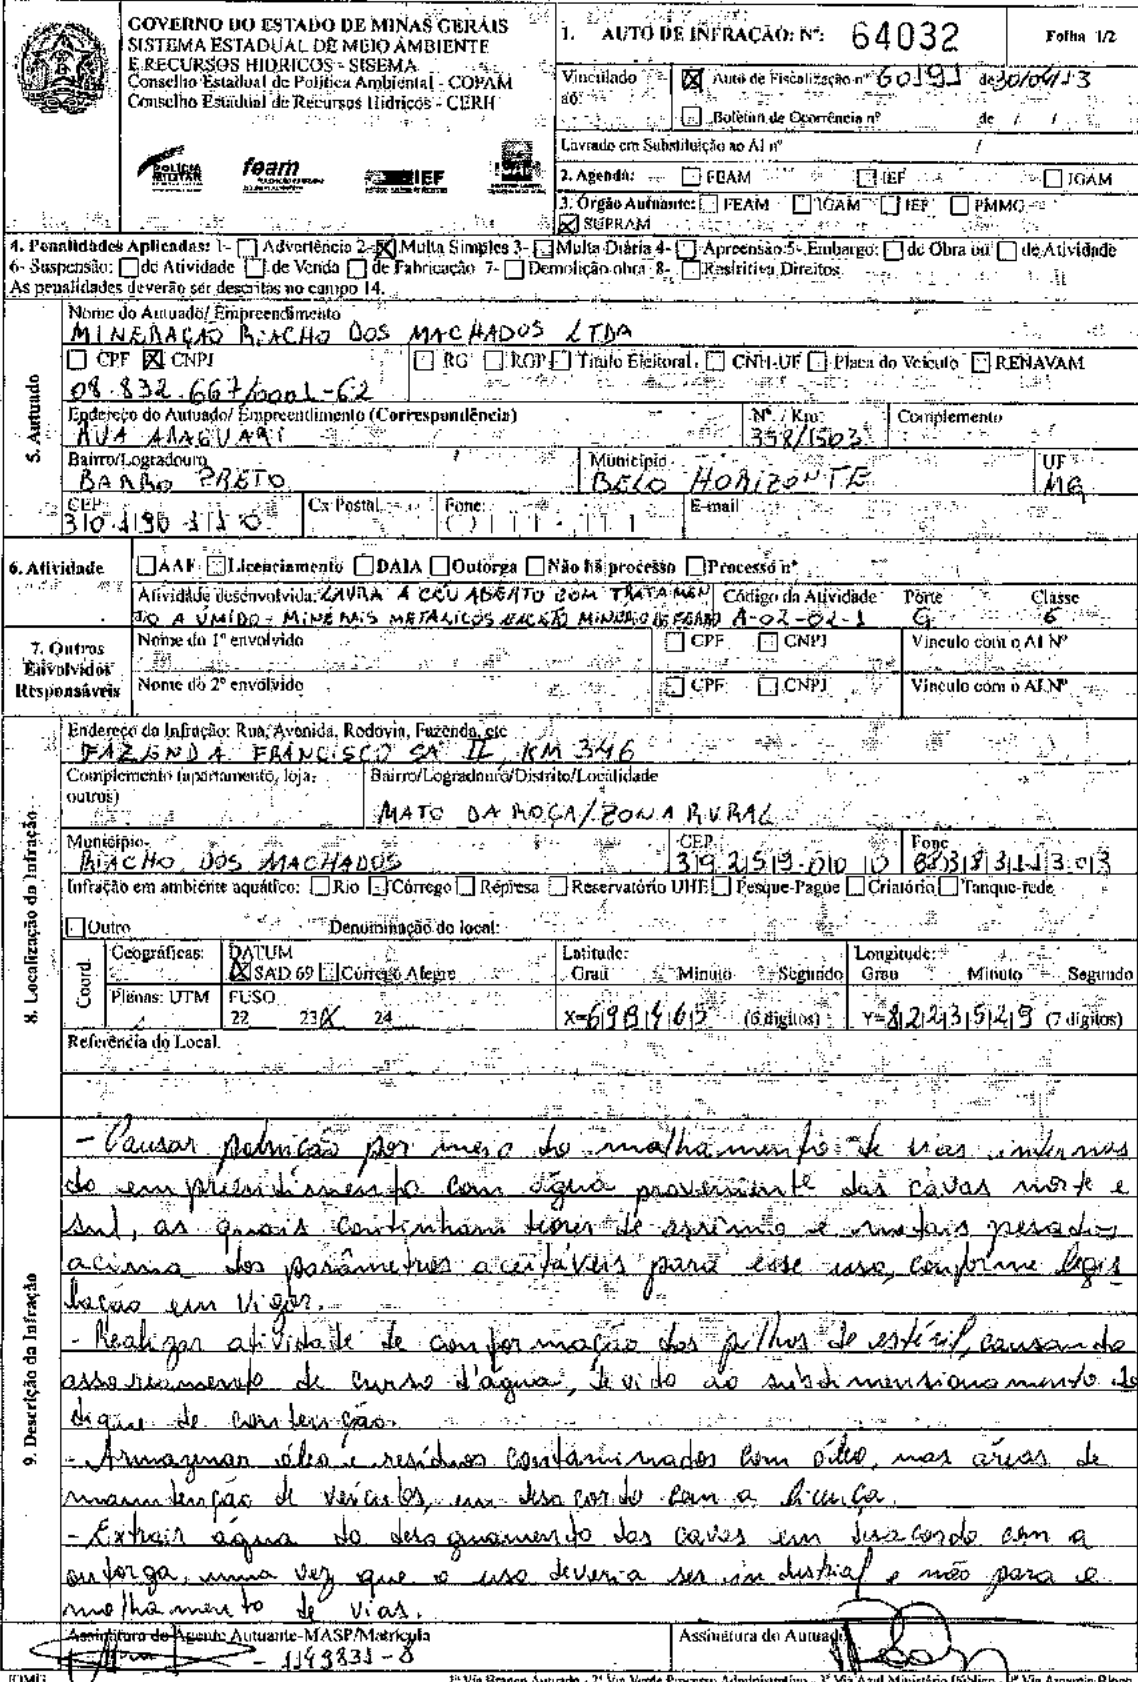 GOVERNO DO ESTADO DE MINAS GERAIS
SISTEMA ESTADUAL DE MEIO AMBIENTE
E RECURSOS HIDRICOS - SISEMA
Conselho Estadual de Política Ambiental - COPAM
Conselho Estadual de Recursos Hídricos - CERH
POLÍCIA MILITAR feam IEF
1. AUTO DE INFRAÇÃO: Nº: 64032 Folha 1/2
Vinculado ao: [X] Auto de Fiscalização nº 60191 de 30/04/13
[ ] Boletim de Ocorrência nº de / /
Lavrado em Substituição ao AI nº /
2. Agenda: [ ] FEAM [ ] IEF [ ] IGAM
3. Órgão Autuante: [ ] FEAM [ ] IGAM [ ] IEF [ ] PMMG
[X] SUPRAM
4. Penalidades Aplicadas: 1- [ ] Advertência 2- [X] Multa Simples 3- [ ] Multa Diária 4- [ ] Apreensão 5- Embargo: [ ] de Obra ou [ ] de Atividade
6- Suspensão: [ ] de Atividade [ ] de Venda [ ] de Fabricação 7- [ ] Demolição obra 8- [ ] Restritiva Direitos
As penalidades deverão ser descritas no campo 14.
5. Autuado
Nome do Autuado/ Empreendimento
MINERAÇÃO RIACHO DOS MACHADOS LTDA
[ ] CPF [X] CNPJ [ ] RG [ ] RGP [ ] Título Eleitoral [ ] CNH-UF [ ] Placa do Veículo [ ] RENAVAM
08.832.667/0001-62
Endereço do Autuado/ Empreendimento (Correspondência) Nº. / Km Complemento
RUA ARAGUARI 358/1503
Bairro/Logradouro Município UF
BARRO PRETO BELO HORIZONTE MG
CEP Cx Postal Fone: E-mail
30.190-110
6. Atividade
[ ] AAF [ ] Licenciamento [ ] DAIA [ ] Outorga [ ] Não há processo [ ] Processo nº
Atividade desenvolvida: LAVRA A CÉU ABERTO COM TRATAMEN Código da Atividade Porte Classe
TO A ÚMIDO - MINERAIS METÁLICOS EXCETO MINÉRIO DE FERRO A-02-02-1 G 6
7. Outros Envolvidos Responsáveis
Nome do 1º envolvido [ ] CPF [ ] CNPJ Vínculo com o AI Nº
Nome do 2º envolvido [ ] CPF [ ] CNPJ Vínculo com o AI Nº
8. Localização da Infração
Endereço da Infração: Rua, Avenida, Rodovia, Fazenda, etc
FAZENDA FRANCISCO SÁ II, KM 346
Complemento (apartamento, loja, outros) Bairro/Logradouro/Distrito/Localidade
MATO DA ROÇA/ZONA RURAL
Município CEP Fone
RIACHO DOS MACHADOS 39259-000 (38)38311303
Infração em ambiente aquático: [ ] Rio [ ] Córrego [ ] Represa [ ] Reservatório UHE [ ] Pesque-Pague [ ] Criatório [ ] Tanque-rede
[ ] Outro Denominação do local:
Coord.
Geográficas: DATUM Latitude: Longitude:
[X] SAD 69 [ ] Córrego Alegre Grau Minuto Segundo Grau Minuto Segundo
Planas: UTM FUSO
22 23 X 24 X= (6 dígitos) Y=8223529 (7 dígitos)
Referência do Local.
9. Descrição da Infração
- Causar poluição por meio do molhamento de vias internas
do empreendimento com água proveniente das cavas norte e
sul, as quais continham teores de arsênio e metais pesados
acima dos parâmetros aceitáveis para esse uso, conforme legis
lação em vigor.
- Realizar atividade de conformação das pilhas de estéril, causando
assoreamento de curso d'água, devido ao subdimensionamento do
dique de contenção.
- Armazenar óleo e resíduos contaminados com óleo, nas áreas de
manutenção de veículos, em desacordo com a licença.
- Extrair água do desaguamento das cavas em desacordo com a
outorga, uma vez que o uso deveria ser industrial e não para o
molhamento de vias.
Assinatura do Agente Autuante-MASP/Matrícula Assinatura do Autuado
- 1149831-8
1ª Via Branca Autuado - 2ª Via Verde Processo Administrativo - 3ª Via Azul Ministério Público - 4ª Via Amarela Bloco